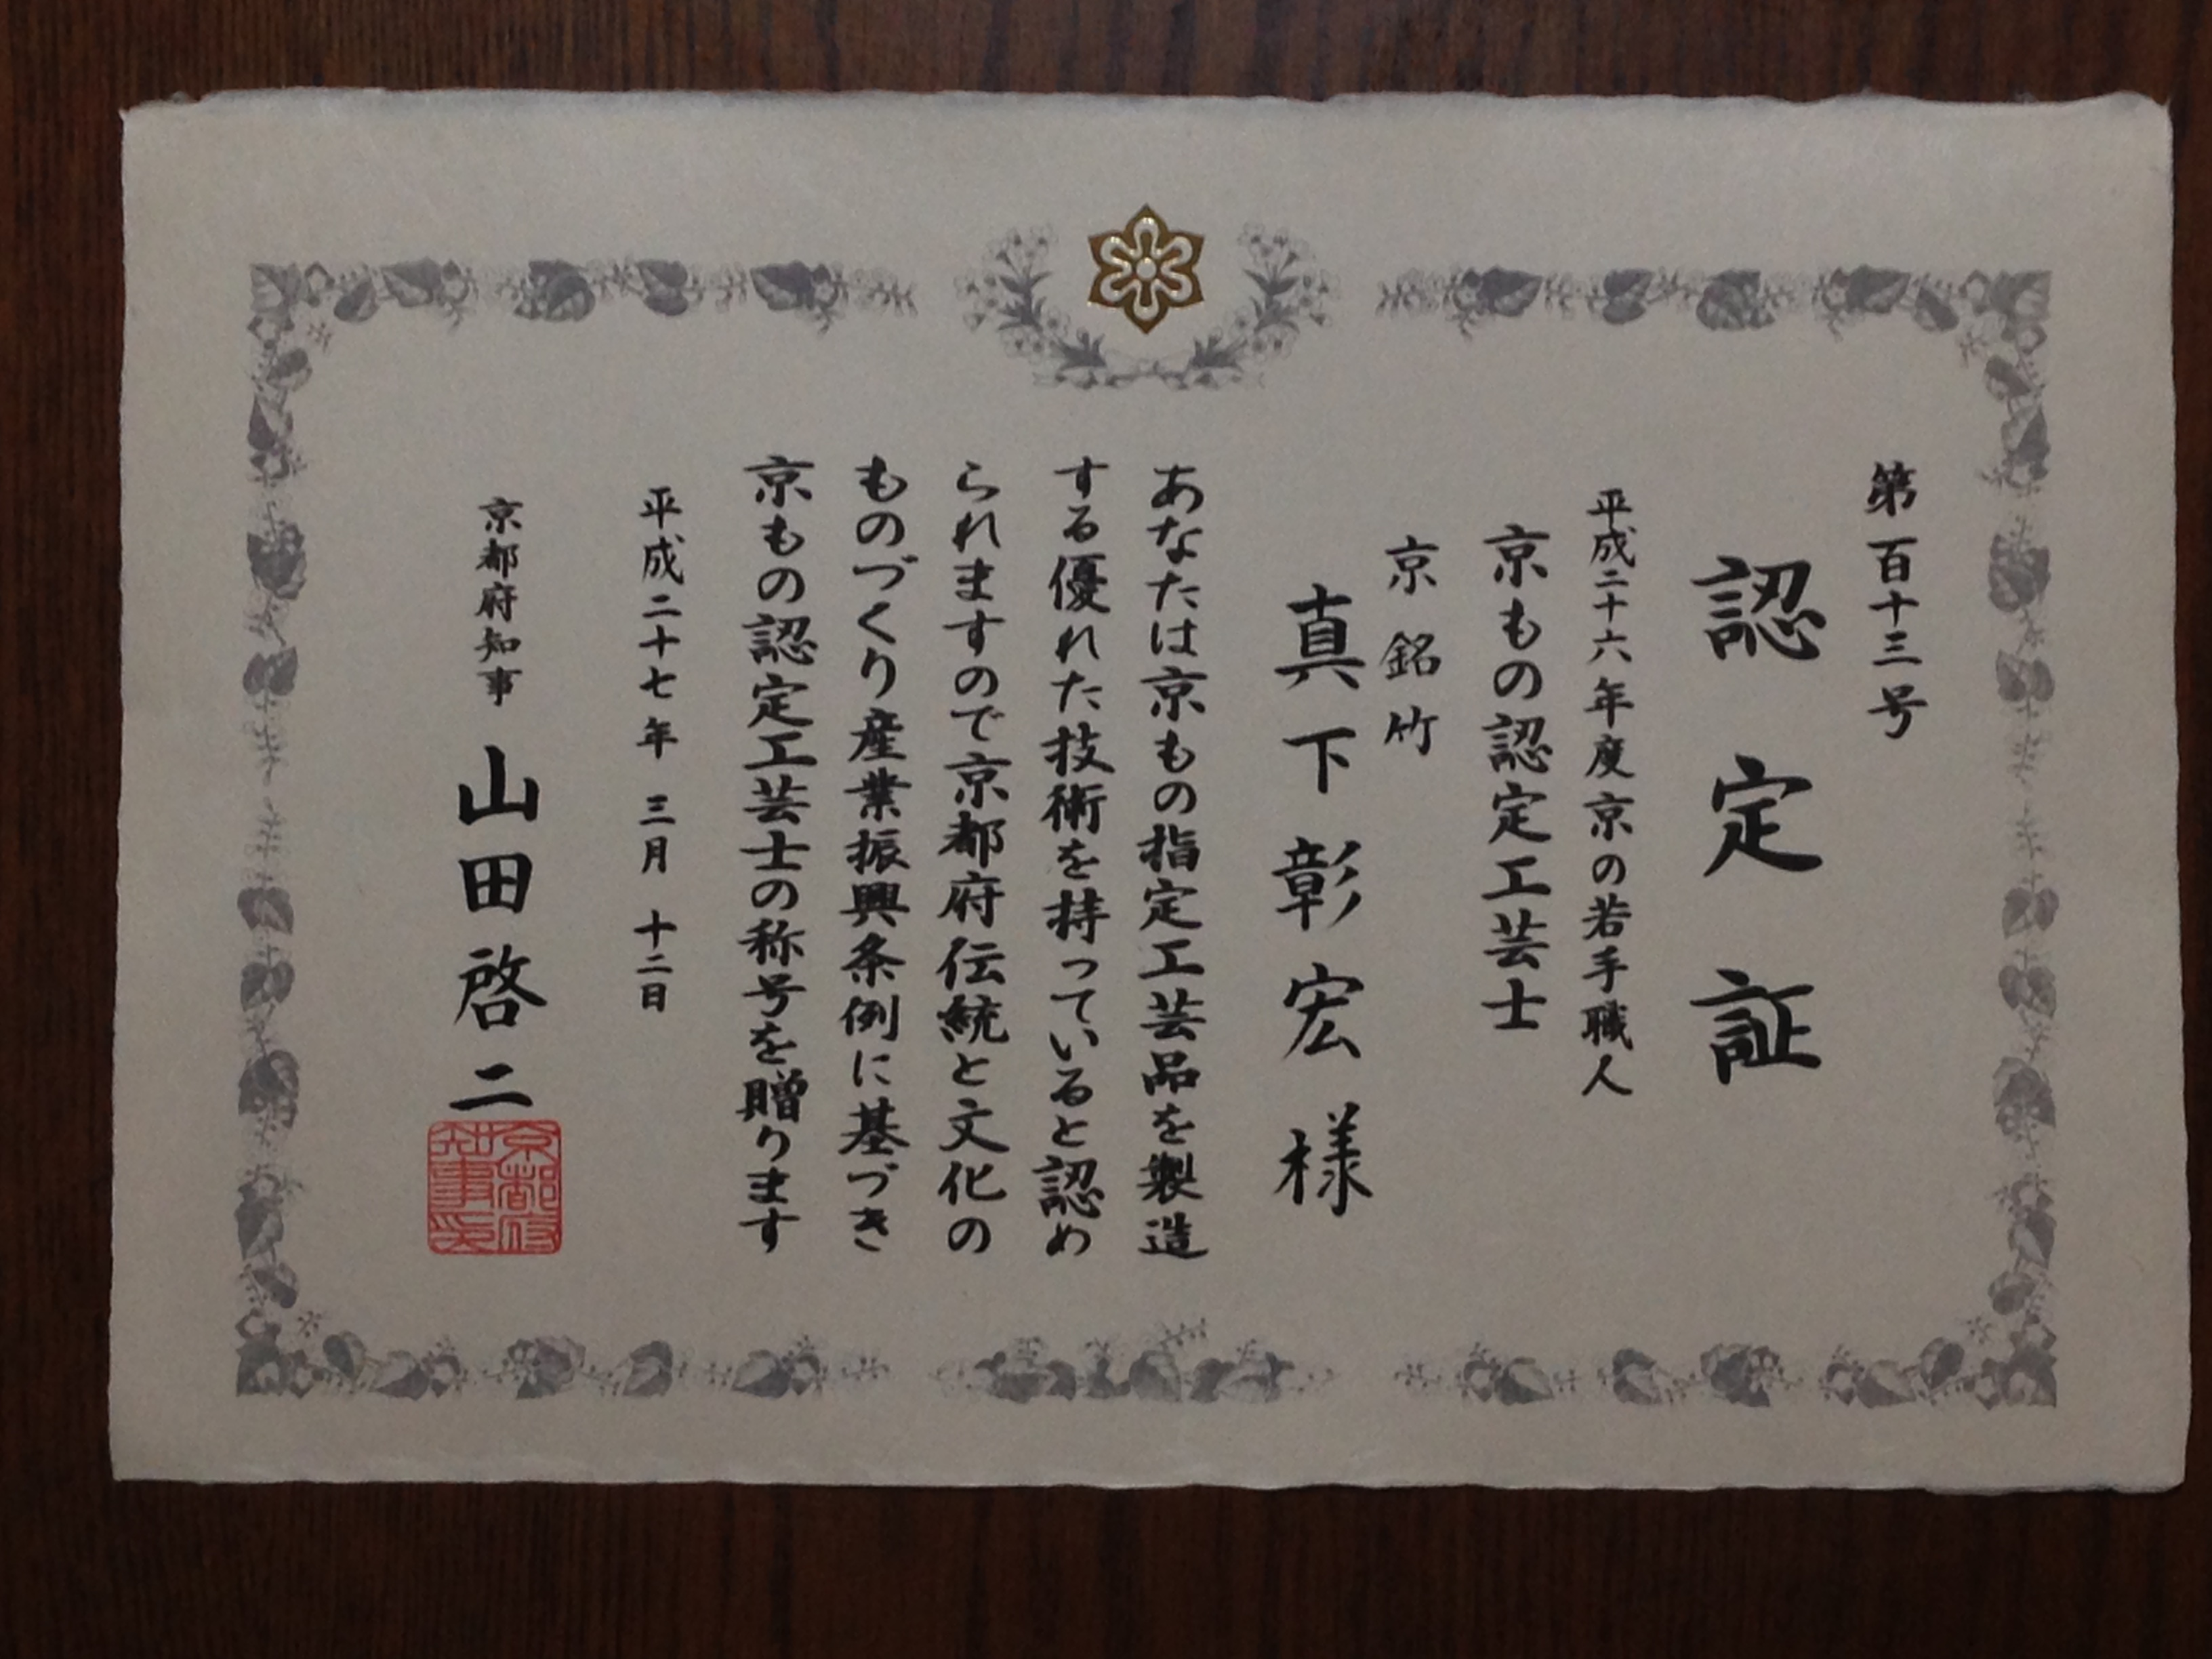 第百十三号
認定証
平成二十六年度京の若手職人
京もの認定工芸士
京銘竹
真下彰宏様
あなたは京もの指定工芸品を製造
する優れた技術を持っていると認め
られますので京都府伝統と文化の
ものづくり産業振興条例に基づき
京もの認定工芸士の称号を贈ります
平成二十七年三月十二日
京都府知事山田啓二
京都府
知事印